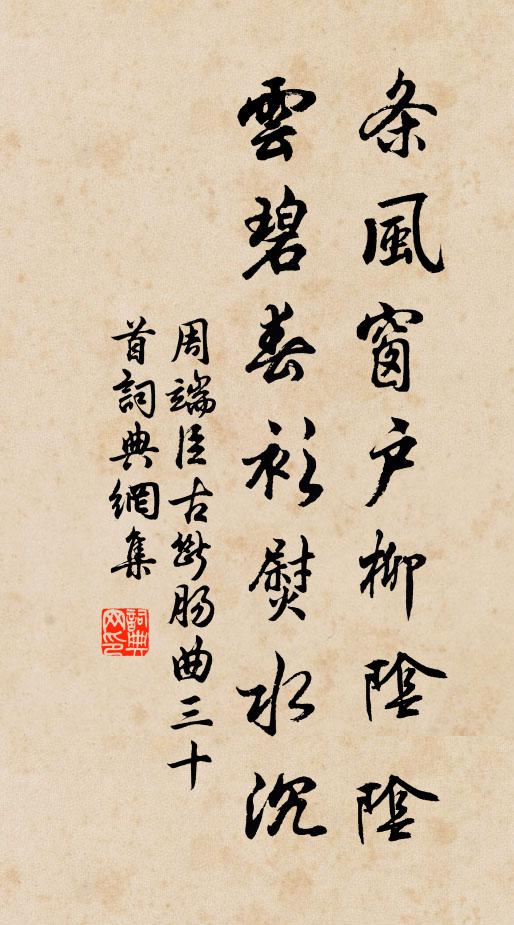 条風窗户柳陰陰
雲碧春衫熨水沉
周端臣古斷肠曲三十
首詞典網集
詞典网印